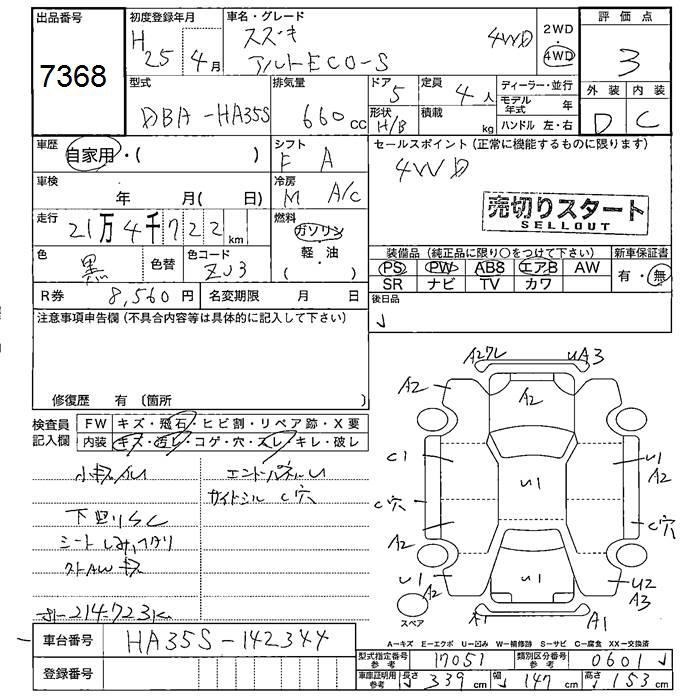 出品番号
7368
初度登録年月
H25 4月
車名・グレード
スズキ
アルトECO-S 4WD
2WD
4WD
評価点
3
外装 内装
D C
型式
DBA-HA35S
排気量
660cc
ドア
5
形状
H/B
定員
4人
積載
kg
ディーラー・並行
モデル年式 年
ハンドル 左・右
車歴
自家用・( )
シフト
F A
車検
年 月( 日)
冷房
M A/C
走行
21万4千722km
燃料
ガソリン
軽・油
( )
色
黒
色替
色コード
ZJ3
R券 8,560円
名変期限 月 日
セールスポイント(正常に機能するものに限ります)
4WD
売切りスタート
SELLOUT
装備品(純正品に限り○をつけて下さい)
PS PW ABS エアB AW
SR ナビ TV カワ
新車保証書
有・無
後日品
注意事項申告欄(不具合内容等は具体的に記入して下さい)
修復歴 有〔箇所 〕
検査員記入欄
FW キズ・飛石・ヒビ割・リペア跡・X要
内装 キズ・汚レ・コゲ・穴・スレ・キレ・破レ
小キズ
エンドパネルU
サイドシル C穴
下回りSC
シートしみ,
214723K
A2 A2 A3 A2
C1 U1 A2
C穴 U1 C穴
A2
U1 A2 U1 U2 A3
A1 A1
スペア
A-キズ E-エクボ U-凹み W-補修跡 S-サビ C-腐食 XX-交換済
車台番号 HA35S-142344
登録番号
型式指定番号 参考 17051
類別区分番号 参考 0601
車庫証明用 参考 長さ 339cm 幅 147cm 高さ 153cm